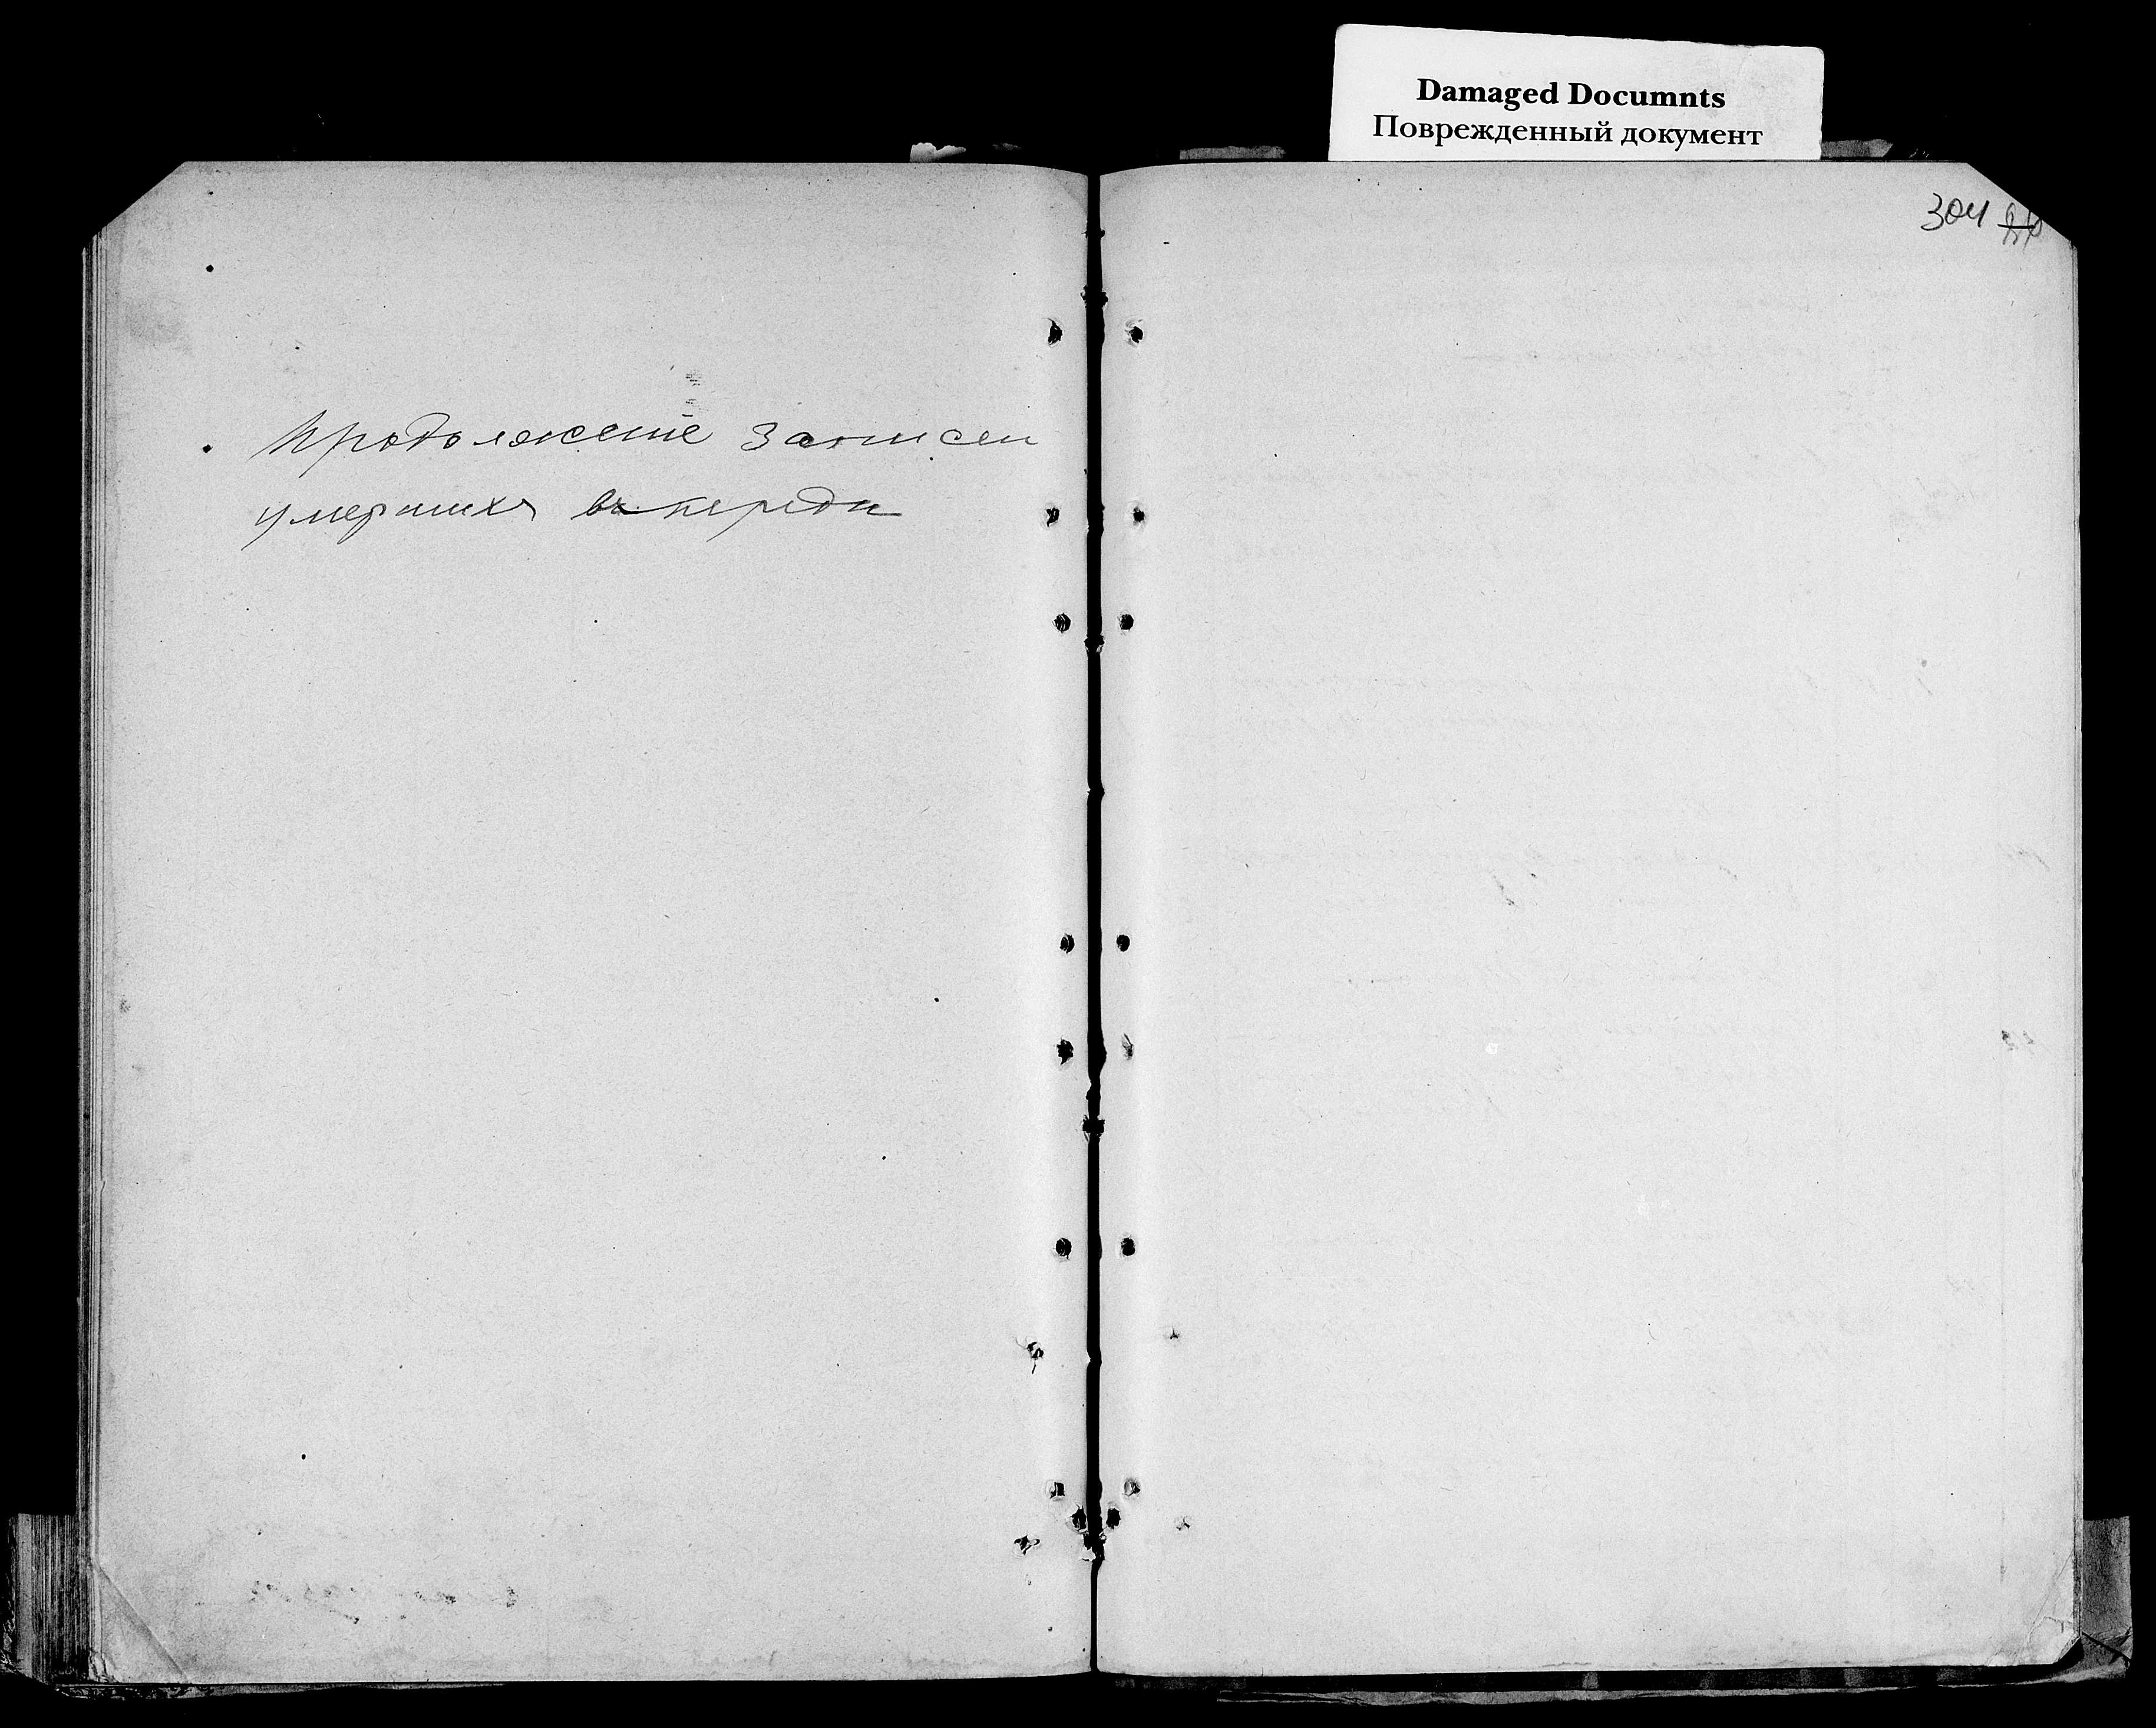 Damaged Documnts
Поврежденный документ
304
Продолженіе записей
умершихъ въ переди